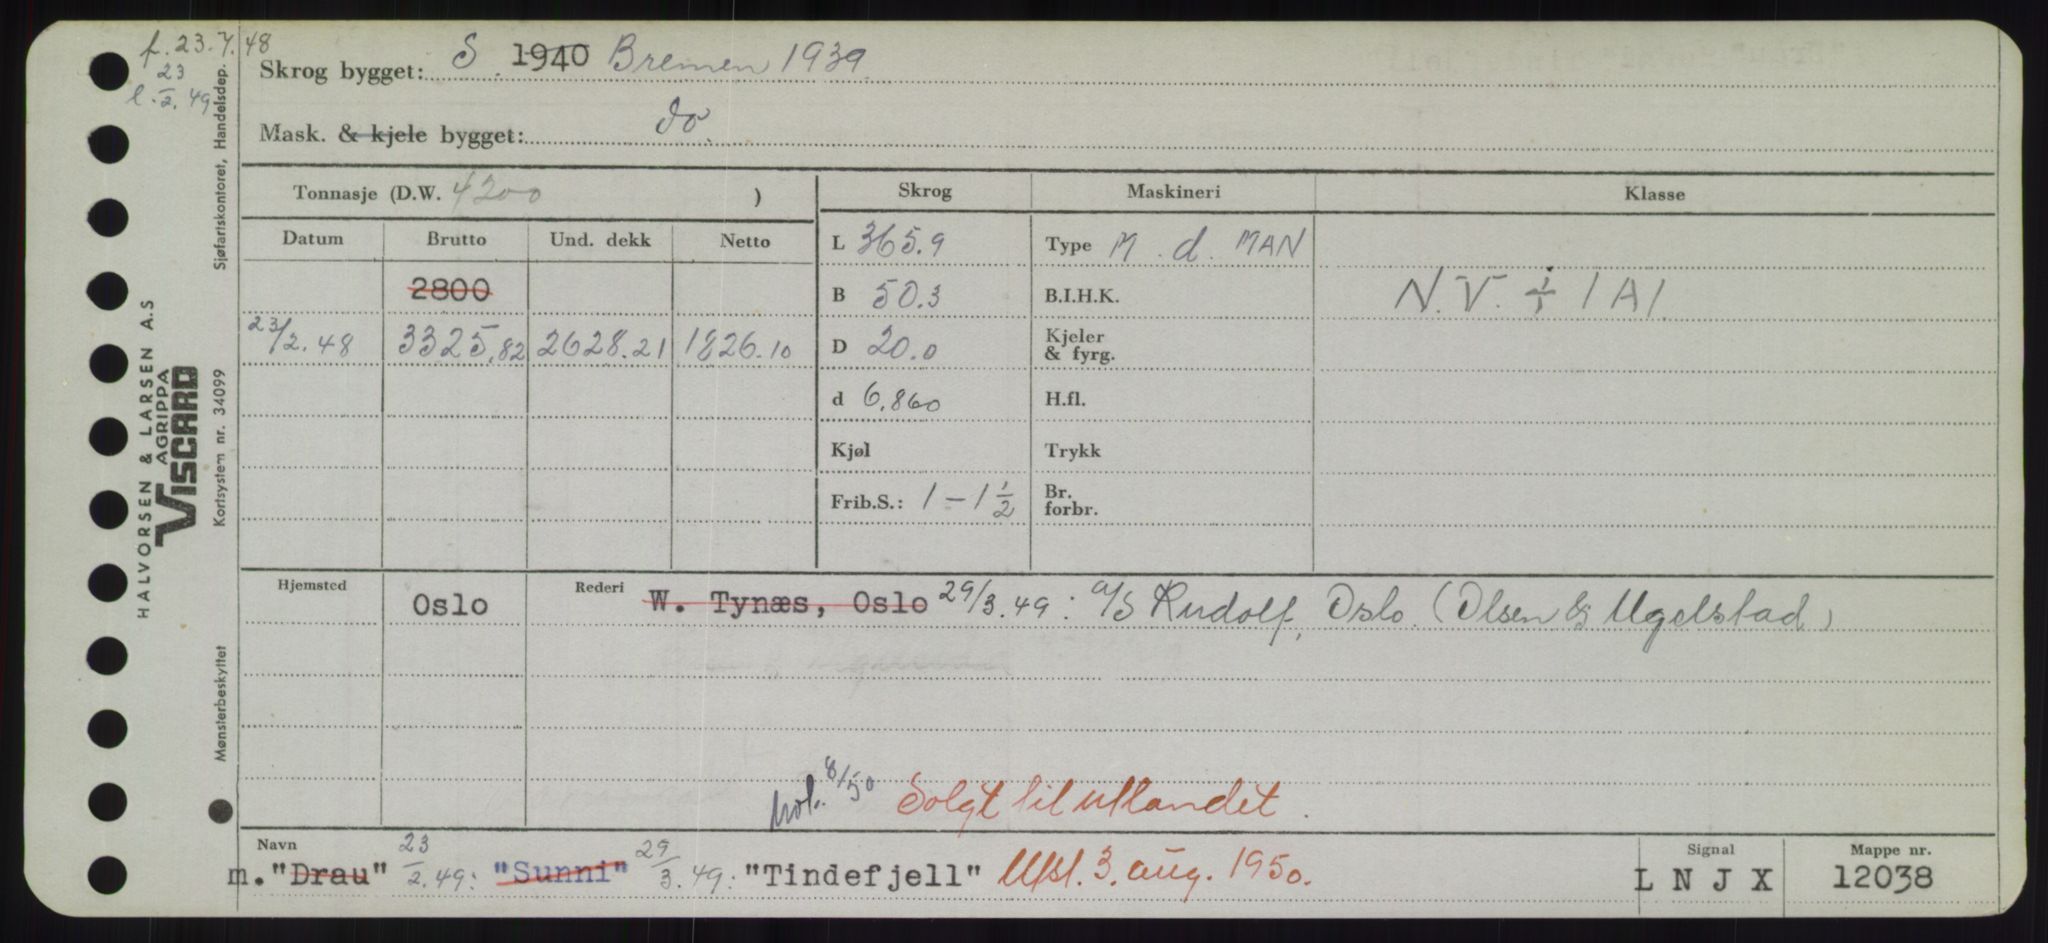 f. 23.7.48
l. 23/2. 49
Skrog bygget: S. 1940 Bremen 1939
Mask. & kjele bygget: do.
Tonnasje (D.W. 4200 )
Skrog Maskineri Klasse
Datum Brutto Und. dekk Netto
L 365.9 Type M. d. MAN
2800
B 50.3 B.I.H.K. N.V. + 1/1 1A1.
23/2.48 3325,82 2628.21 1826.10
D 20.0 Kjeler & fyrg.
d 6.860 H.fl.
Kjøl Trykk
Frib.S.: 1 - 1 1/2 Br. forbr.
Hjemsted Oslo Rederi W. Tynæs, Oslo 29/3.49: A/S Rudolf, Oslo. (Olsen & Ugelstad)
8/50 Solgt til utlandet.
Navn
m. "Drau" 23/2.49: "Sunni" 29/3.49: "Tindefjell" Utsl. 3. aug. 1950.
Signal
L N J X
Mappe nr.
12038
HALVORSEN & LARSEN A.S
AGRIPPA
VISCARD
Mønsterbeskyttet Kortsystem nr. 34099 Sjøfartskontoret, Handelsdep.